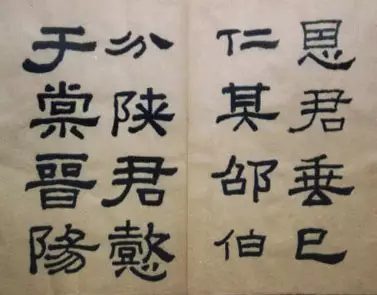 恩君垂巳
仁其邵伯
分陕君懿
于棠晋陽